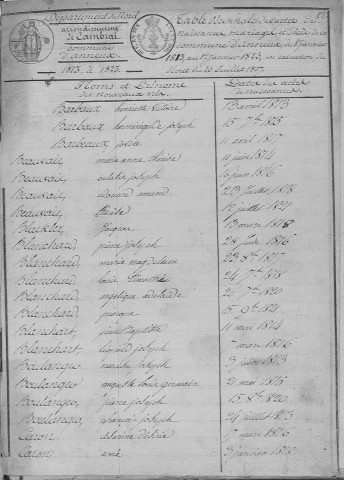 Département du Nord
arrondissement
de Cambrai
commune
d'anneux
1813 à 1823
Table Décennale des actes de
naissance, mariage et décès de la
commune d'anneux, du 1er janvier
1813, au 1er janvier 1823, en exécution du
décret du 20 Juillet 1807
Noms et Prénoms
des Nouveaux nés
Dates des actes
de naissances
Barbaux henriette victoire 13 avril 1813
Barbaux herménégilde joseph 15 7bre
Barbaux josette 11 avril 1817
Beauvais marie anne thérèse 11 juin 1814
Beauvais joseph 6 juin 1816
Beauvais édouard amand 23 Juillet 1818
Beauvais thérèse 12 juillet 1821
jacques 13 mars
Blanchard pierre joseph 28 Juin 1816
Blanchard marie magdelaine 23 8bre 1817
Blanchard louis timothée 24 7bre 1818
Blanchard angélique adélaïde 7bre 1820
Blanchard 15 9bre 1821
Blanchart jean Baptiste 11 mai 1814
Blanchart léopold joseph 7 mars 1816
Boulanger joseph 3 juin 1813
Boulanger auguste louis germain 2 mai 1815
Boulanger pierre joseph 15 8bre 1820
Boulanger françois joseph 24 juillet 1813
Caron désirée 17 mars 1816
Caron aimé 3 janvier 1813